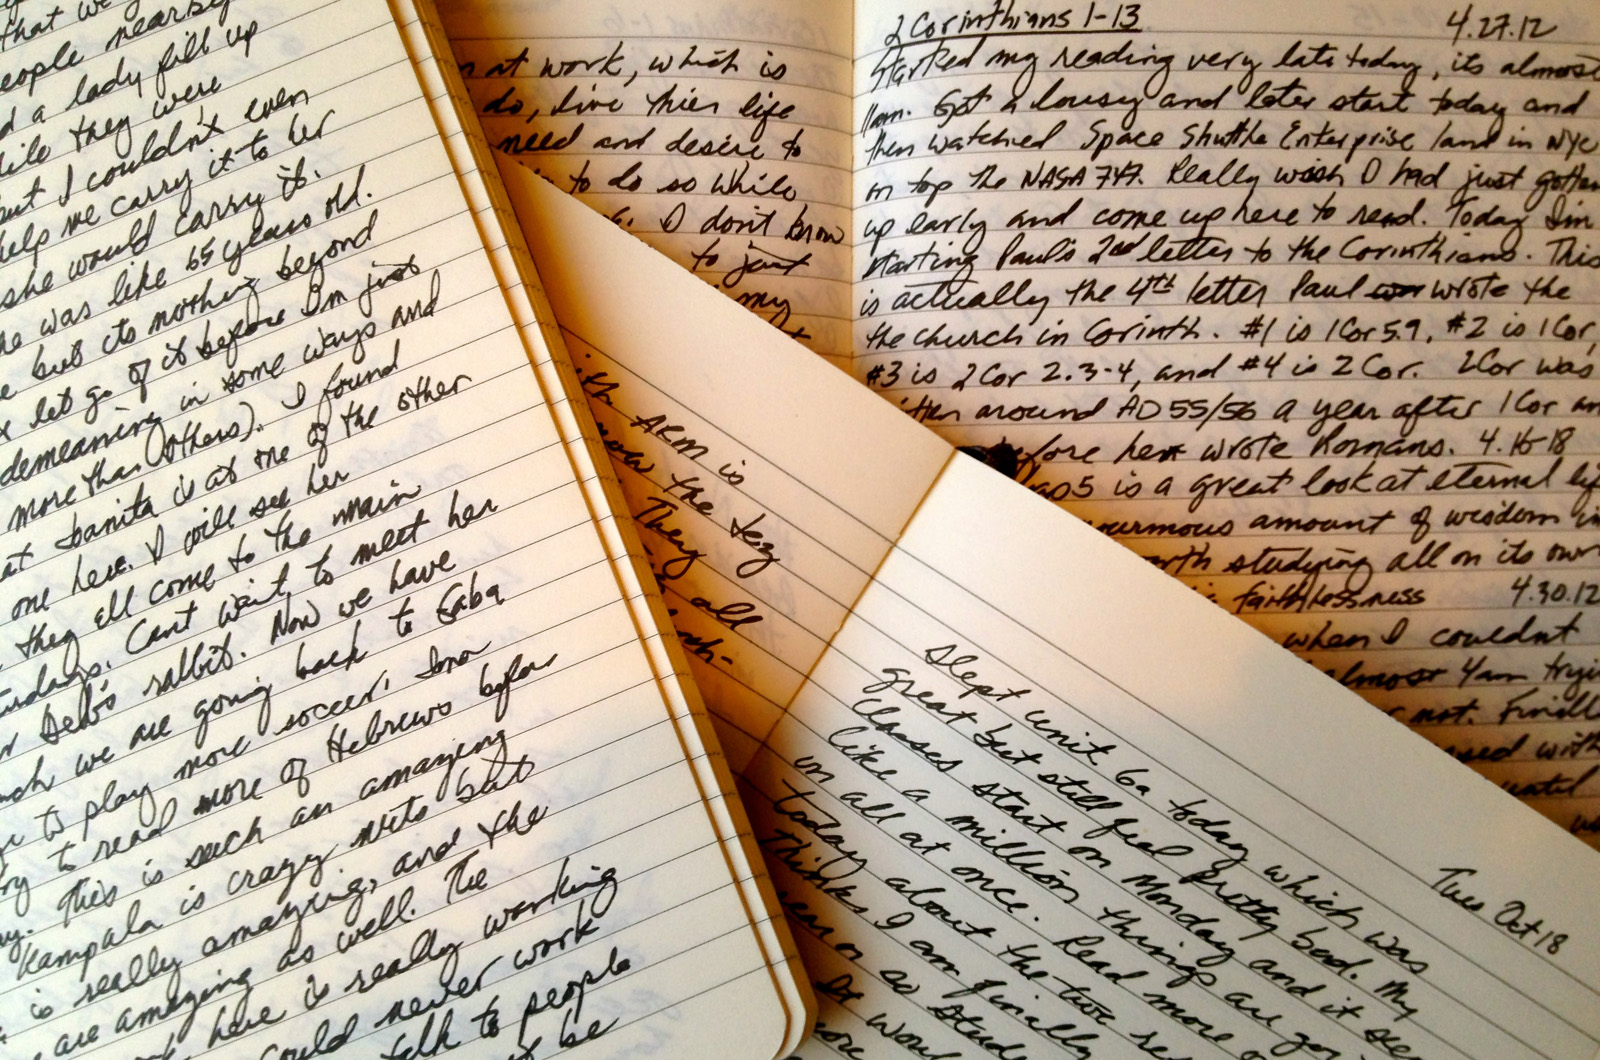 that we
people nearby
a lady fill up
while they were
but I couldn't even
help me carry it to her
she would carry it.
was like 65 years old.
but its nothing beyond
let go of it before I'm just
demeaning in some ways and
more than others). I found
at Juanita is at one of the other
one here. I will see her
they all come to the main
Can't wait to meet her
Deb's rabbit. Now we have
we are going back to Gaba
to play more soccer.
to read more of Hebrews before
This is such an amazing
Kampala is crazy nuts but
is really amazing, and the
are amazing as well. The
here is really working
could never work
talk to people
be
at work, which is
do, live this life
need and desire to
to do so while
I don't know
to just
my
2 Corinthians 1-13 4.27.12
Started my reading very late today, its almost
11am. Got a lousy and later start today and
then watched Space Shuttle Enterprise land in NYC
on top the NASA 747. Really wish I had just gotten
up early and come up here to read. Today I'm
starting Paul's 2nd letter to the Corinthians. This
is actually the 4th letter Paul wrote the
the church in Corinth. #1 is 1Cor 5.9, #2 is 1Cor,
#3 is 2Cor 2.3-4, and #4 is 2Cor. 2Cor was
around AD 55/56 a year after 1Cor
before he wrote Romans. 4.16-18
5 is a great look at eternal
amount of wisdom in
studying all on its own
faithlessness 4.30.12
when I couldn't
almost 4am
not.
with
until
ARM is
now the
They
all
Tues Oct 18
Slept until 6a today which was
great but still feel pretty bad. My
classes start on Monday and it
like a million things are
on all at once. Read more
today about the two
thinks I am finally
on as
would
more